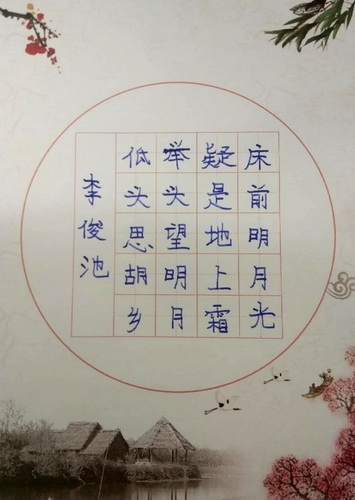 床前明月光
疑是地上霜
举头望明月
低头思胡乡
李俊池